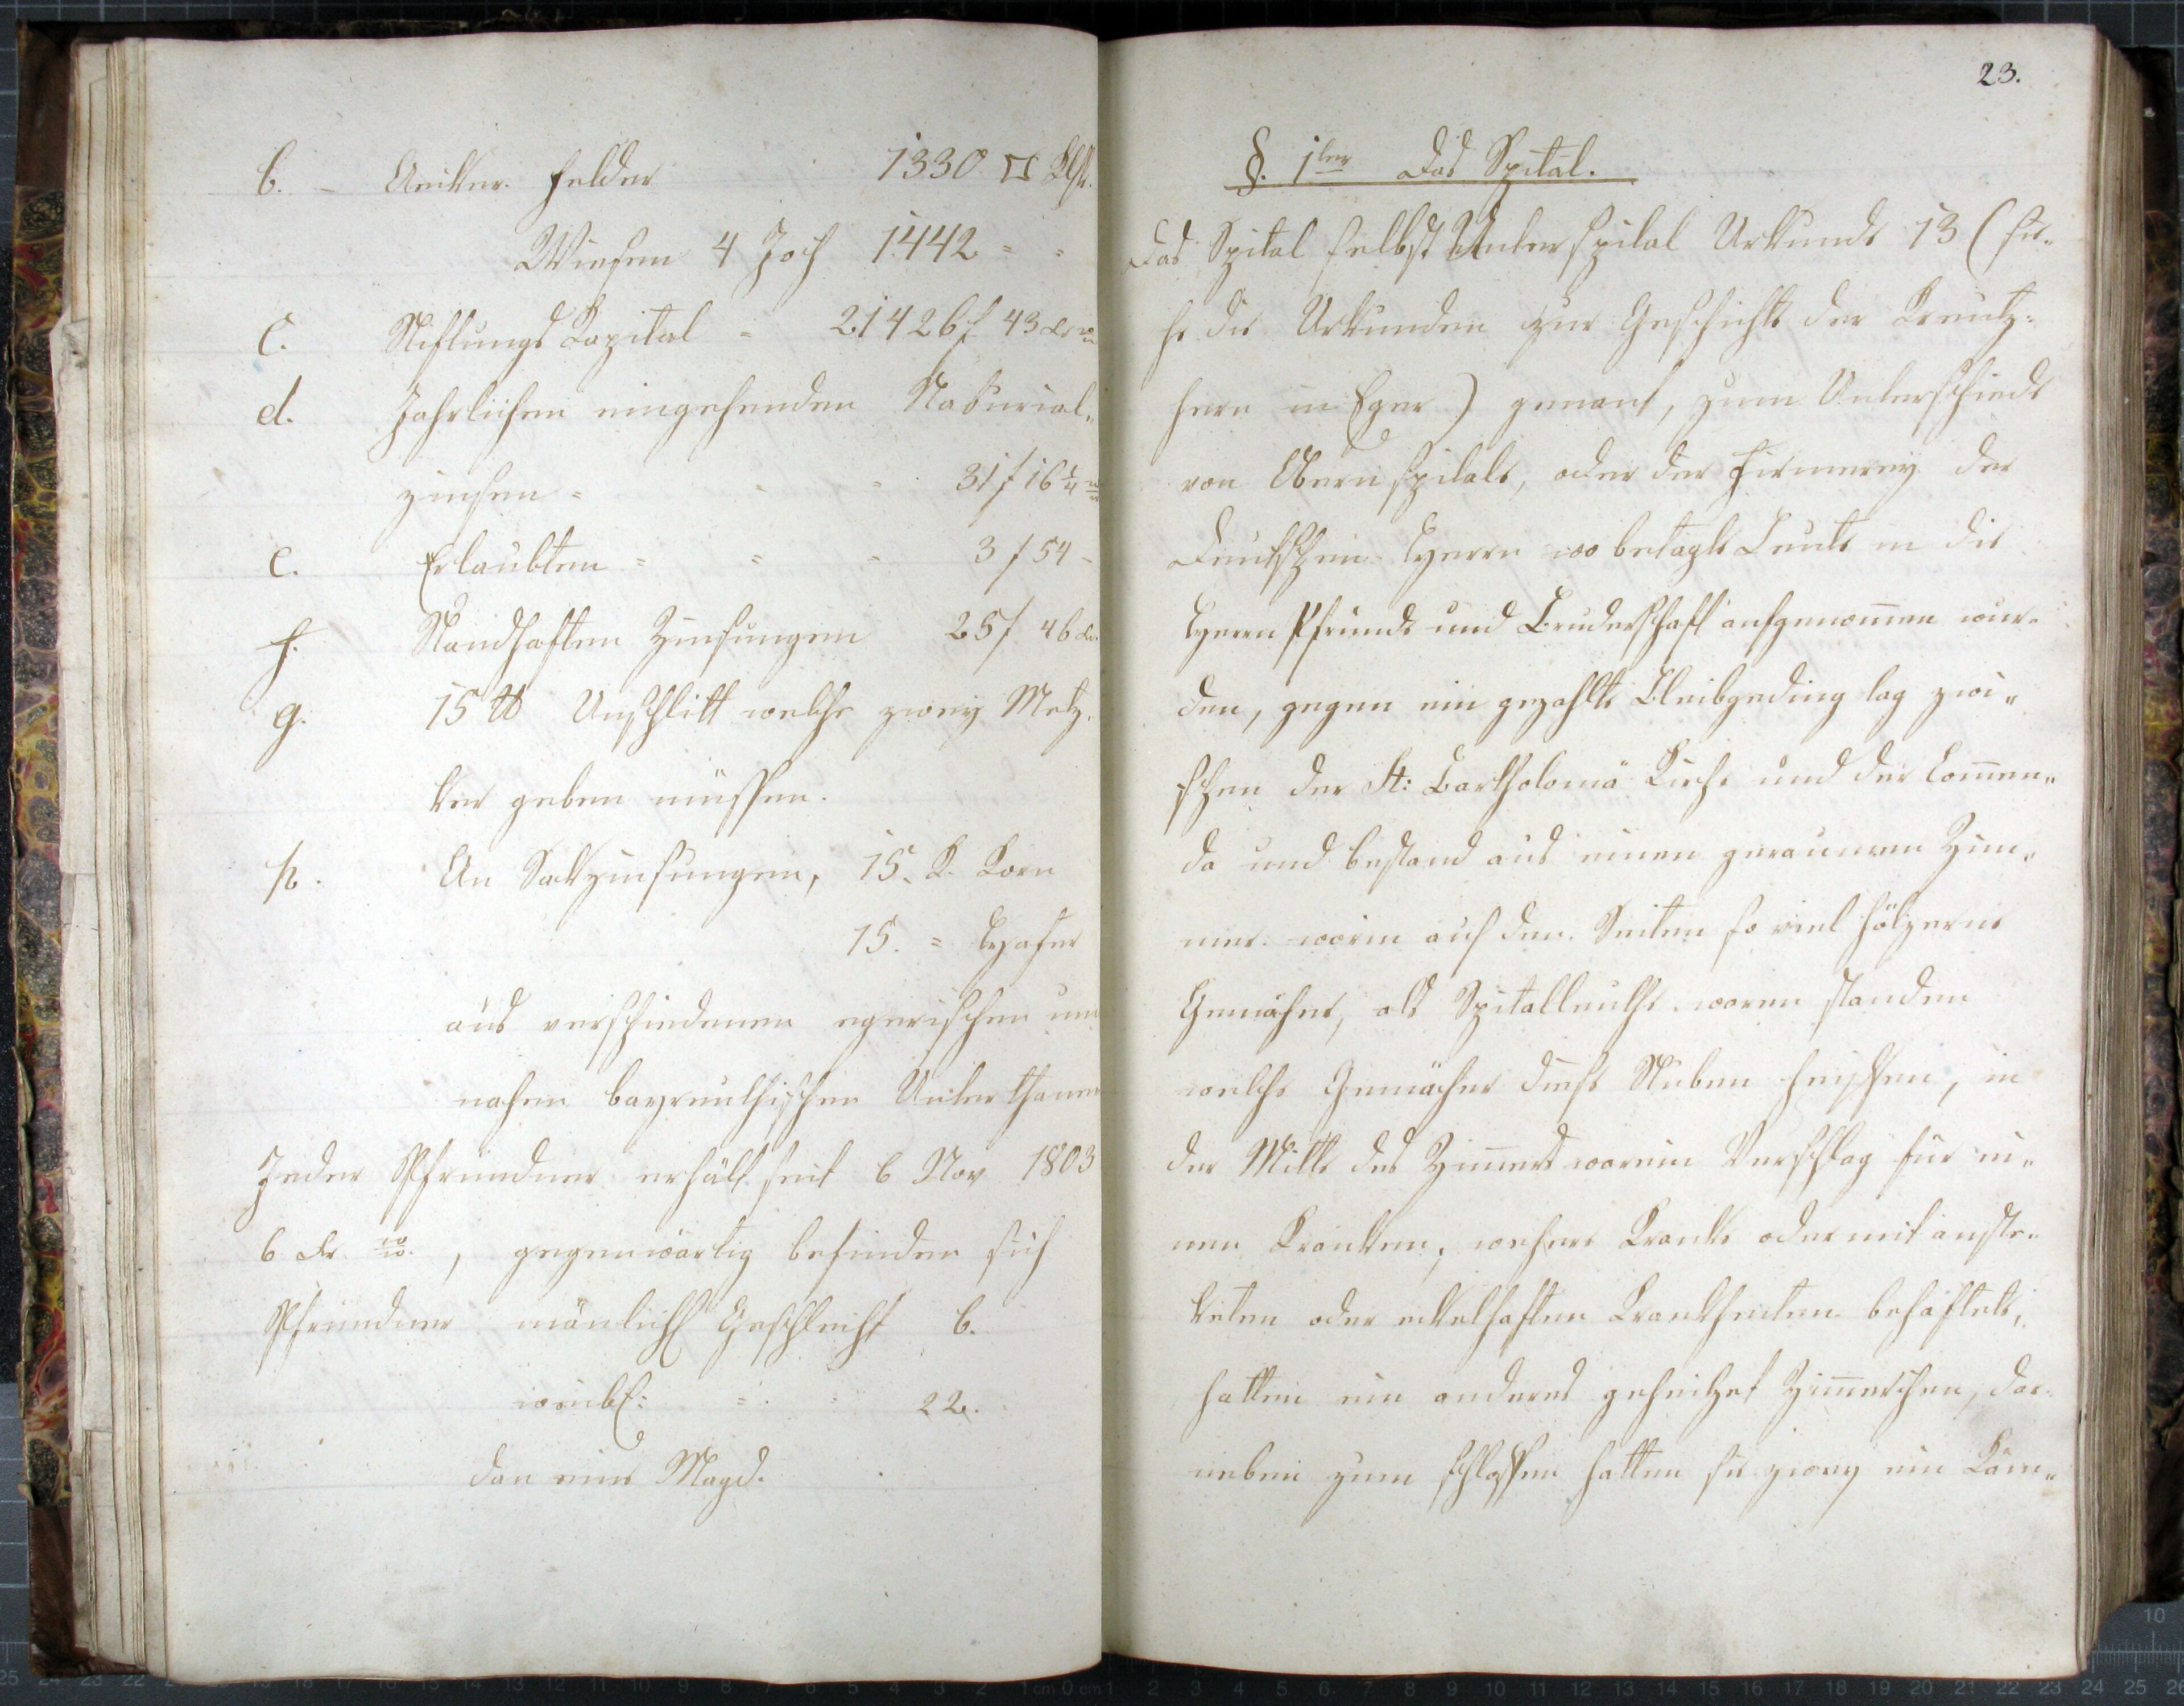 b. - Aecker. Felder 1330 □ Klft.
Wiesen 4 Joch 1442 = =
c. Stiftungs Kapital = 21426 f 43 kr
d. Jahrlichen eingehenden Naturial„
zinsen = = = 31 f 16 1/4
e. Erlaubten = = = 3 f 54 -
f. Standhaften Zinsungen 25 f. 46 kr
g. 15 ℔ Unschlitt welche zwey Metz„
ker geben müssen.
h. An Sackzinsungen, 15. K. Korn
15. = Haber
aus verschiedenen egerischen und
nahen bayreuthischen Unterthanen
Jeder Pfründner erhält seit 6 Nov 1803
6 kr. , gegenwärtig befinden sich
Pfründner mänlichl Geschlecht 6.
weibl: = = 22.
dan eine Magd.
23.
§. 1ter Das Spital.
Das Spital selbst Unterspital Urkunde 13 (sie„
he die Urkunden zur Geschichte der Kreutz„
hern in Eger) genant, zum Unterschiede
von Obern spitale, oder der Firmerey der
Deutschen Herrn wo betagte Leute in die
Herrn Pfründe und Bruderschaft aufgenom̅en wur„
den, gegen ein gezahlte Bleibgeding lag zwi„
schen der St: Bartholomä Kirche und der Com̅en„
da und bestand aus einen geraumen Zim„
mer. worin auf den Seiten so viel hölzerne
Gemächer, als Spitalleuthe waren standen
welche Gemächer diese Stuben heissen, in
der Mitte des Zim̅ers war ein Verschlag für ei„
nen Kranken, mehrere Kranke oder mit anste„
keten oder eckelhaften Krankheiten behaftete,
hatten ein anderes geheitzet Zim̅erchen, dar„
neben zum schlaffen hatten sie zwey ein Kam„